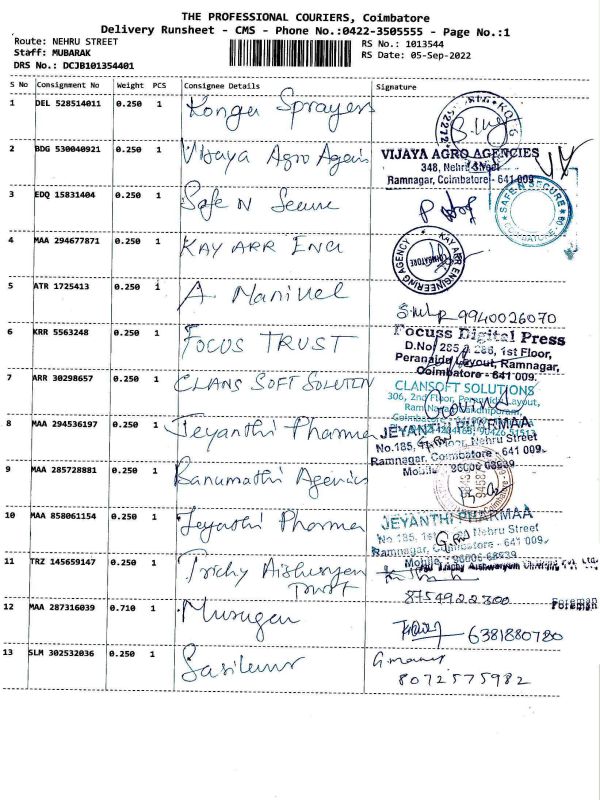 THE PROFESSIONAL COURIERS, Coimbatore
Delivery Runsheet - CMS - Phone No.:0422-3505555 - Page No.:1
Route: NEHRU STREET
Staff: MUBARAK
DRS No.: DCJB101354401
RS No.: 1013544
RS Date: 05-Sep-2022
S No Consignment No Weight PCS Consignee Details Signature
1 DEL 528514011 0.250 1 Konga Sprayers
2 BDG 530040921 0.250 1 Vijaya Agro Agencis
VIJAYA AGRO AGENCIES
348, Nehru Street
Ramnagar, Coimbatore - 641 009
3 EDQ 15831404 0.250 1 Safe N Secure
SAFE N SECURE
COIMBATORE
4 MAA 294677871 0.250 1 KAY ARR ENG
KAY ARR ENGINEERING AGENCY
COIMBATORE
5 ATR 1725413 0.250 1 A Manivel
9940026070
6 KRR 5563248 0.250 1 FOCUS TRUST
Focuss Digital Press
D.No: 285 & 286, 1st Floor,
Peranaidu Layout, Ramnagar,
Coimbatore - 641 009.
7 ARR 30298657 0.250 1 CLANS SOFT SOLUTION
CLANSOFT SOLUTIONS
306, 2nd Floor, Peranaidu Layout,
Ram Nagar, Gandhipuram,
8 MAA 294536197 0.250 1 Jeyanthi Pharma
JEYANTHI PHARMAA
No.185, Nehru Street
Ramnagar, Coimbatore - 641 009.
Mobile 96006 68939
9 MAA 285728881 0.250 1 Banumathi Agencies
10 MAA 858061154 0.250 1 Jeyanthi Pharma
JEYANTHI PHARMAA
No 185, 1st Nehru Street
Ramnagar, Coimbatore - 641 009
Mobile - 96006-68939
11 TRZ 145659147 0.250 1 Trichy Aishwaryam
Trust
8754922300
Foreman
12 MAA 287316039 0.710 1 Murugan
6381880780
13 SLM 302532036 0.250 1 Sasikumr
8072575982